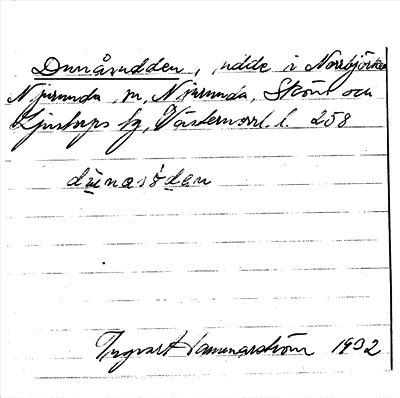 Dunåsudden, udde i Norrbjörken
Njurunda sn, Njurunda, Sköns och
Ljustorps tg, Västernorrl. l. 258
Ingvart Hammarström 1932